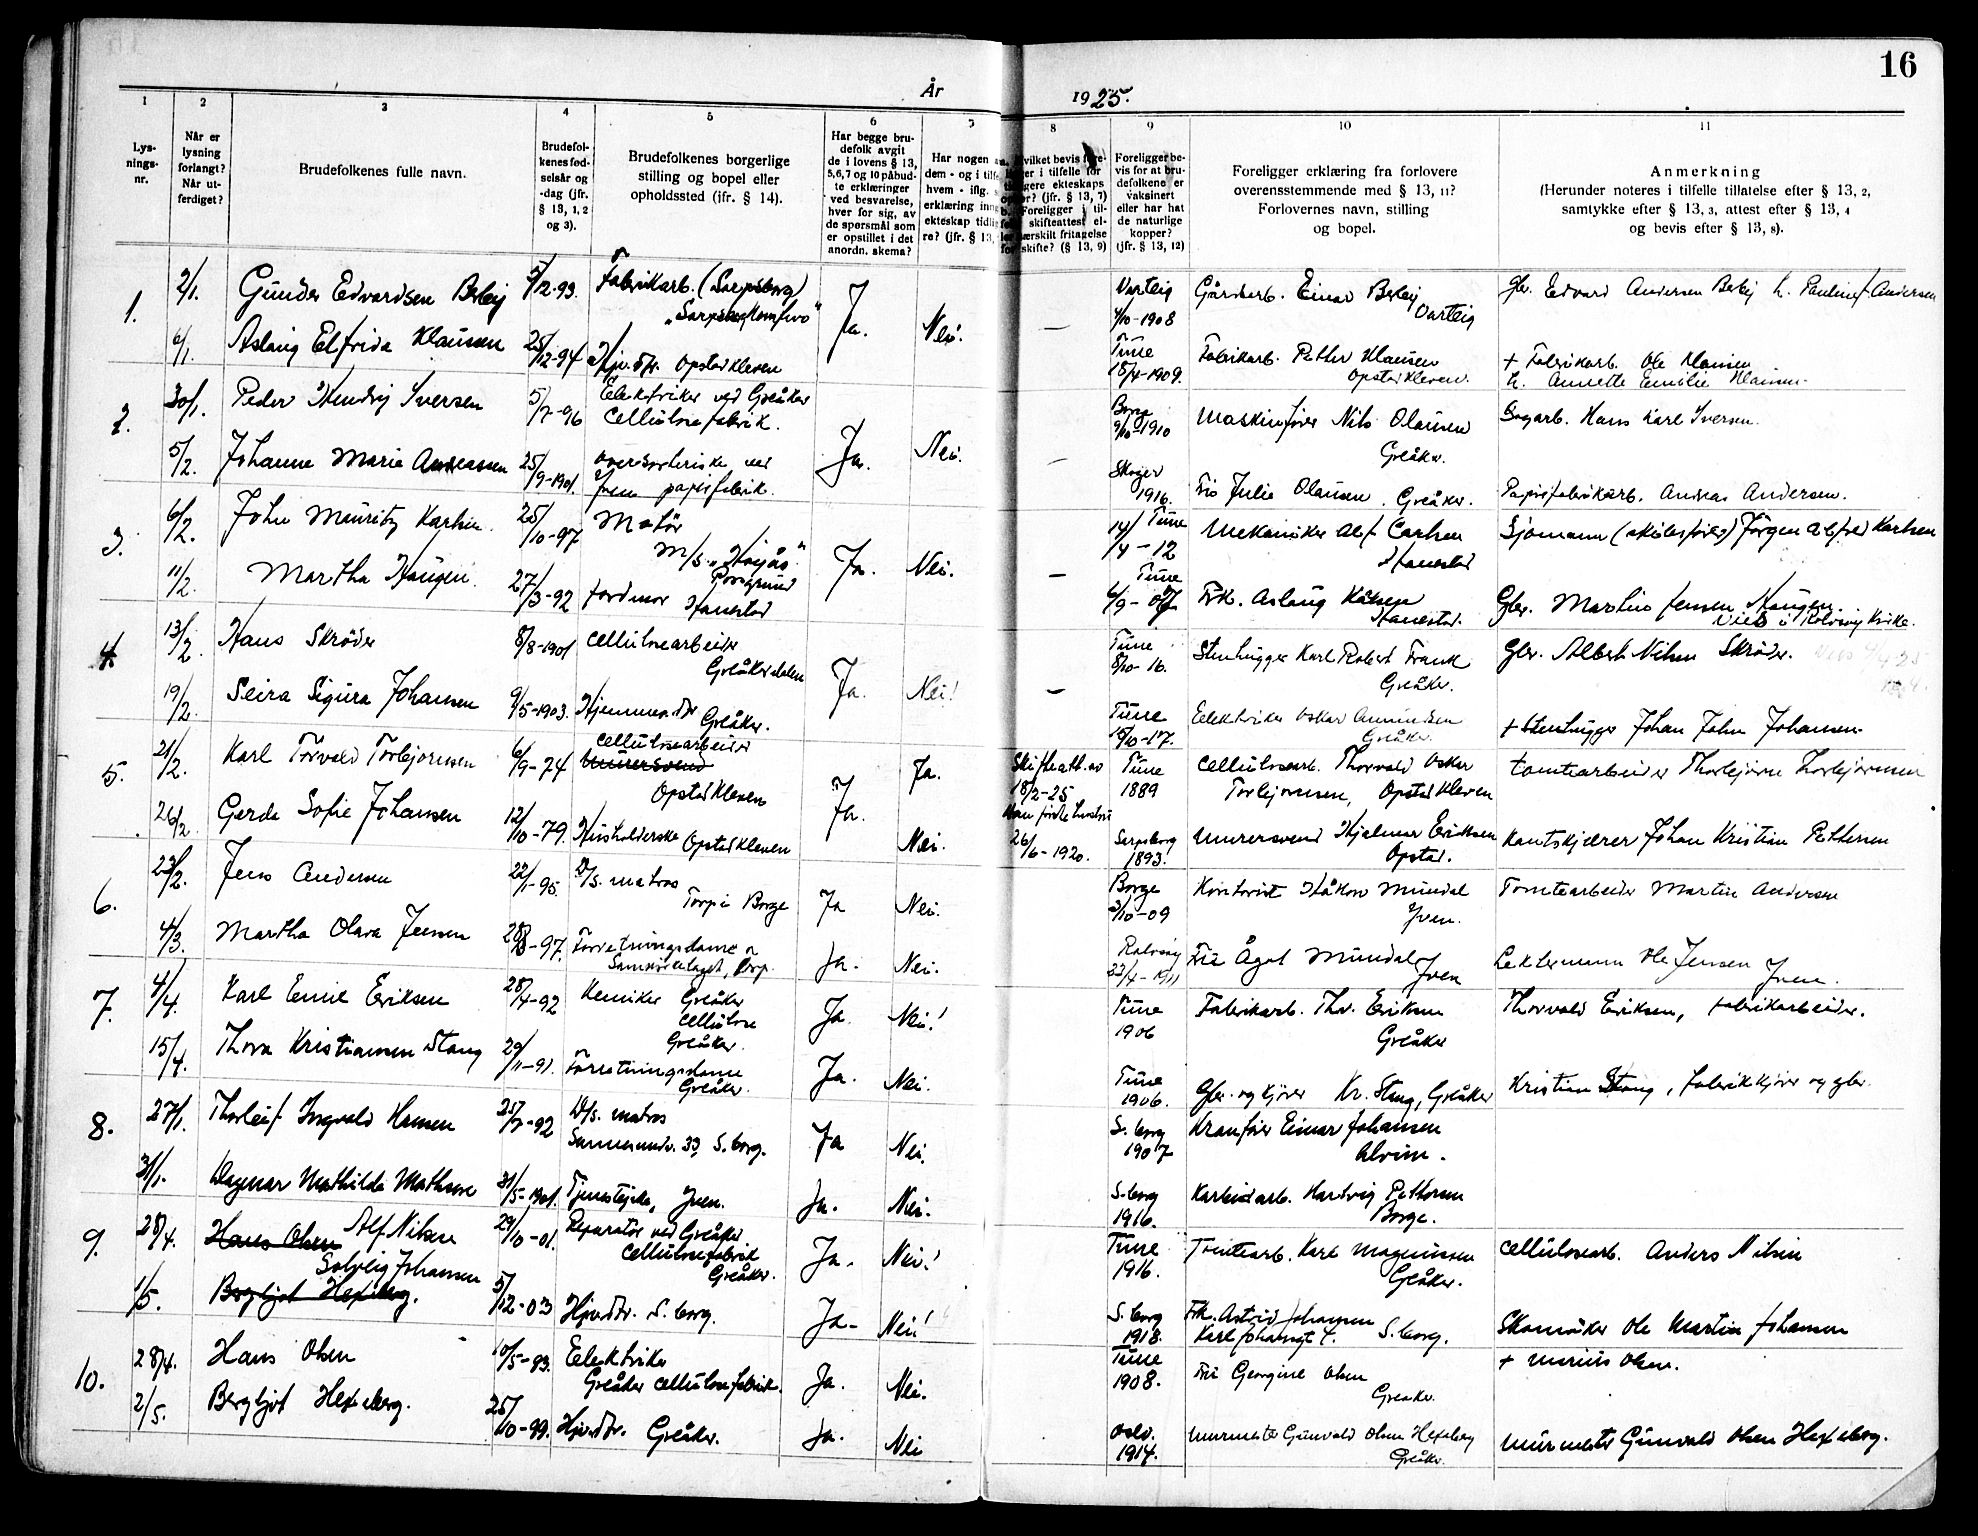 16
År 1925.
1 2 3 4 5 6 7 8 9 10 11
Lys-
nings-
nr.
Når er
lysning
forlangt?
Når ut-
ferdiget?
Brudefolkenes fulle navn.
Brudefol-
kenes fød-
selsår og
-dag (jfr.
§ 13, 1, 2
og 3).
Brudefolkenes borgerlige
stilling og bopel eller
opholdssted (ifr. § 14).
Har begge bru-
defolk avgit
de i lovens § 13,
5,6,7 og 10 påbud-
te erklæringer
ved besvarelse,
hver for sig, av
de spørsmål som
er opstillet i det
anordn. skema?
Har nogen
dem - og i
hvem - iflg.
erklæring
ekteskap
re? (jfr. § 13,
i tilfelle for
ekteskaps
(jfr. § 13, 7)
Foreligger i til-
skifteattest el-
særskilt fritagelse
for skifte? (§ 13, 9)
Foreligger be-
vis for at bru-
defolkene er
vaksinert
eller har hat
de naturlige
kopper?
(jfr. § 13, 12)
Foreligger erklæring fra forlovere
overensstemmende med § 13, 11?
Forlovernes navn, stilling
og bopel.
Anmerkning
(Herunder noteres i tilfelle tillatelse efter § 13, 2,
samtykke efter § 13, 3, attest efter § 13, 4
og bevis efter § 13, 8).
1. 2/1. Gunder Edvardsen Berby 5/12-93. Fabrikarb. (Sarpsborg) Ja. Nei. — Varteig 4/10-1908 Gårdarb. Einar Berby Varteig Gbr. Edvard Andersen Berby h. Pauline Andersen
6/1. Aslaug Elfrida Klausen 25/12-94 Hjv. dtr. Opstadkleven Tune 18/4-1909. Fabrikarb. Petter Klausen Opstadkleven. + Fabrikarb. Ole Klausen
h. Annette Emilie Klausen.
2. 30/1. Peder Hendrij Iversen 5/7-96 Elektriker ved Greåker
Cellulosefabrik. Ja. Nei. — Borge 9/10-1910 Maskinfører Nils Olausen Greåker. Sagarb. Hans Karl Iversen.
5/2. Johanne Marie Andreassen 25/9-1901. oversorterske ved
Yven papirfabrik. Skoger 1916. Fru Julie Olausen, Greåker. Papirfabrikarb. Andreas Andersen.
3. 6/2. John Mauritz Karlsen. 25/10-97 Matros
M/S. "Høyås"
Porsgrund Ja. Nei. — Tune 14/4-12 Mekaniker Alf Carlsen Hanestad Sjømann (skibsfører) Jørgen Alfred Karlsen
11/2. Martha Haugen. 27/3-92 Jordmor Hanestad Tune 6/9-07 Frk. Aslaug Hanestad. Gbr. Martin Jensen Haugen.
Viet i Rolvsøy Kirke.
4. 13/2 Hans Skrøder 8/8-1901 Cellulosearbeider
Greåkerdalen Ja. Nei! — Tune 8/10-16. Stenhugger Karl Robert Frank Greåker. Gbr. Albert Nilsen Skrøder.
19/2. Seira Sigura Johansen 9/5-1903. Hjemmev. dtr Greåker. Tune 15/10-17. Elektriker Oskar Amundsen Greåker. + Stenhugger Johan John Johansen
5. 21/2. Karl Torvald Torbjørnsen 6/9-74 Cellulosearbeider
Murersvend
Opstadkleven Ja. Ja. Skifteatt. av
18/2-25 Tune 1889 Cellulosearb. Thorvald Oskar
Torbjørnsen, Opstadkleven Tomtearbeider Thorbjørn Thorbjørnsen
26/2 Gerda Sofie Johansen 12/10-79. Husholderske Opstadkleven Nei. 26/6-1920. Sarpsborg 1893. Murersvend Hjalmar Eriksen Opstad. Kantskjærer Johan Kristian Pettersen
6. 23/2. Jens Andersen 22/1-95. D/S. matros
Torp i Borge Ja Nei. Borge 3/10-09 Kontorist Håkon Mundal Yven. Tomtearbeider Martin Andersen
4/3. Martha Olava Jensen 28/8-97. Forretningsdame v
Samvirkelaget, Torp. Ja. Nei. Rolvsøy 23/4-1911 Fru Ågot Mundal Yven Lektermann Ole Jensen Yven.
7. 4/4. Karl Emil Eriksen 28/4-92 Kemiker Greåker
Cellulose
Greåker. Ja. Nei! Tune 1906 Fabrikarb. Thv. Eriksen Greåker Thorvald Eriksen, fabrikarbeider.
15/4. Thora Kristiansen Stang 29/11-91. Forretningsdame
Greåker. Ja. Nei. Tune 1906. Gbr. og kjører Kr. Stang, Greåker Kristian Stang, fabrikkjører og gbr.
8. 27/1. Thorleif Ingvald Hansen 25/7-92 D/S. matros
Sannesundv. 39, S. borg. Ja Nei. S. borg 1907 Kranfører Einar Johansen
Alvim.
31/1. Dagmar Mathilda Mathisen 31/5-1901. Tjenestepike, Yven. Ja. Nei. S. borg 1916. Karbidarb. Hartvig Pettersen
Borge.
9. 28/4. Hans Olsen Alf Nilsen 29/10-01. Reparatør ved Greåker
Cellulosefabrik
Greåker. Ja. Nei! Tune 1916. Tomtearb. Karl Magnussen
Greåker. Cellulosearb. Anders Nilsen
1/5. Solveig Johansen
Bergljot Hexeberg. 5/12-03 Hjv. dtr. S. borg. Ja. Nei! S. borg 1918. Frk. Astrid Johansen S. borg. Skomaker Ole Martin Johansen
10. 28/4. Hans Olsen 10/5-93. Elektriker
Greåker Cellulosefabrik. Ja. Nei. Tune 1908. Fru Georgine Olsen
Greåker. + Marius Olsen.
2/5. Bergljot Hexeberg. 25/10-99. Hjv. dtr. Greåker. Ja. Nei Oslo. 1914. Murmester Gunvald Olsen Hexeberg
Greåker. Murmester Gunvald Olsen Hexeberg.